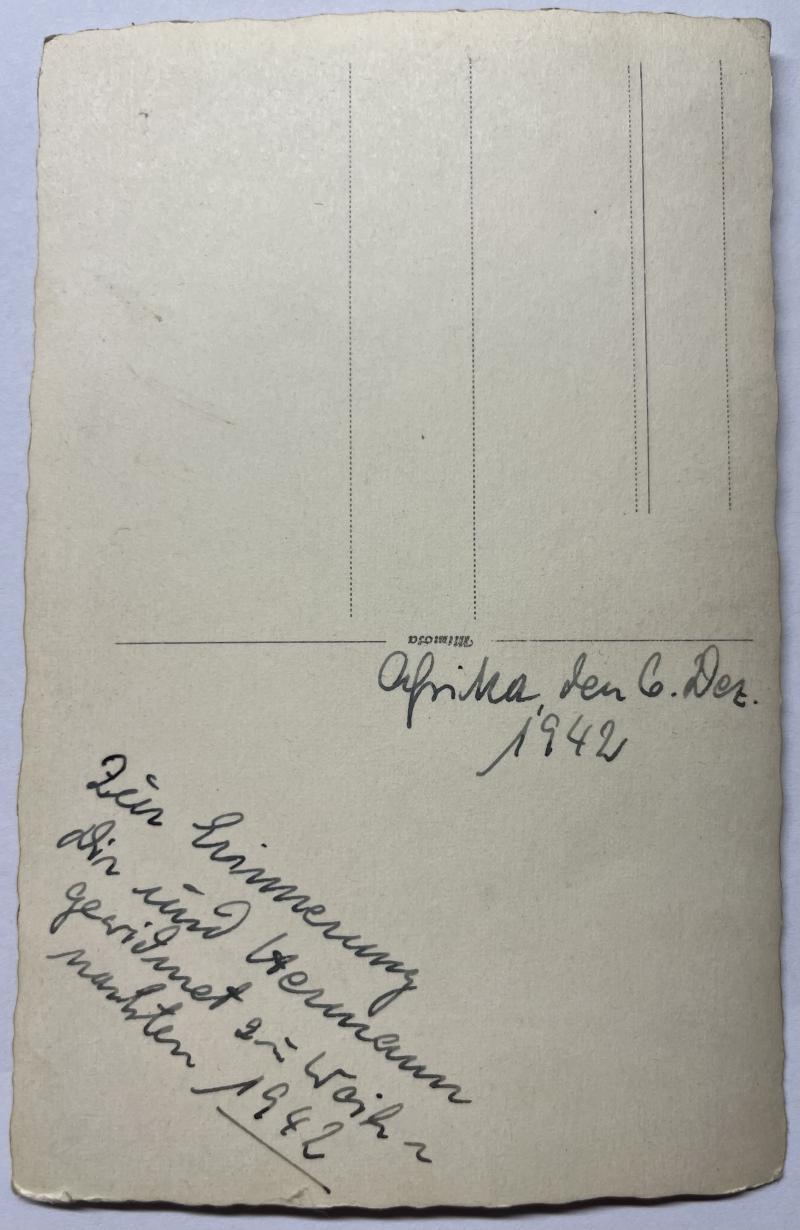 Mimosa
Afrika, den 6. Dez.
1942
Zur Erinnerung
Dir und Hermann
gewidmet zu Weih-
nachten 1942